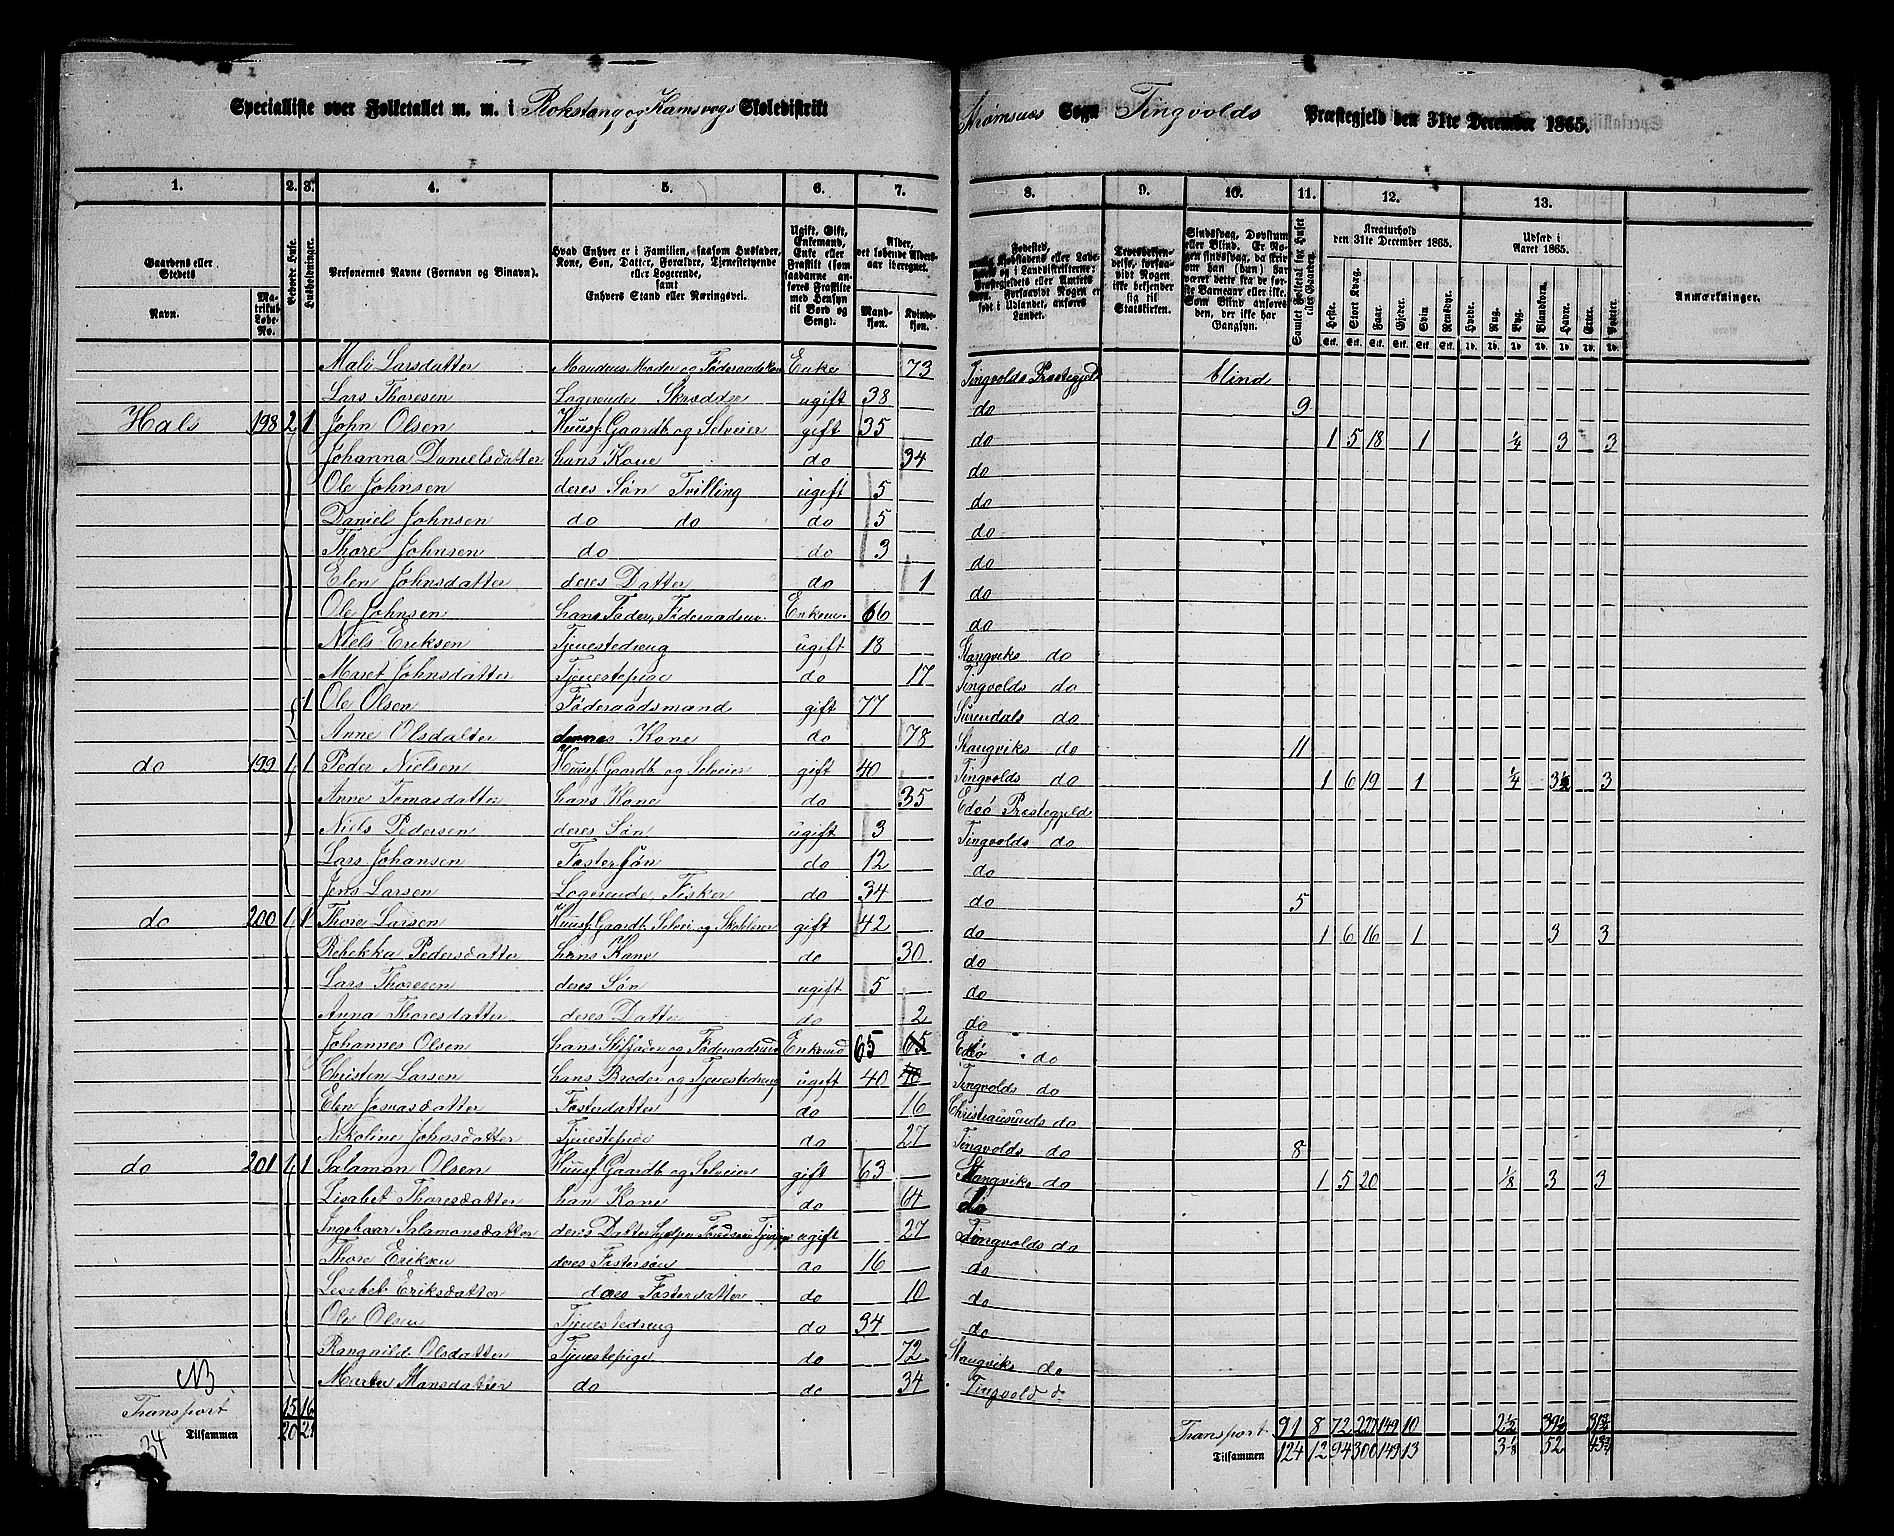 Specialliste over Folketallet m. m. i Rokstang og Kamsvogs Skoledistrikt Strømsnes Sogn Tingvolds Præstegjeld den 31te December 1865.
1. 2. 3. 4. 5. 6. 7. 8. 9. 10. 11. 12. 13.
Gaardens eller Stedets
Navn. Matrikul-Løbe-No.
Beboede Huse.
Husholdninger.
Personernes Navne (Fornavn og Binavn).
Hvad Enhver er i Familien, saasom Husfader, Kone, Søn, Datter, Forældre, Tjenestetyende eller Logerende, samt Enhvers Stand eller Næringsvei.
Ugift, Gift, Enkemand, Enke eller Fraskilt (som saadanne anføres Fraskilte med Hensyn til Bord og Seng).
Alder, det løbende Aldersaar iberegnet.
Mandkjøn. Kvindekjøn.
Kreaturhold den 31te December 1865.
Udsæd i Aaret 1865.
Heste. Stort Kvæg. Faar. Gjeder. Svin. Rensdyr. Hvede. Rug. Byg. Blandkorn. Havre. Erter. Poteter.
Anmærkninger.
Mali Larsdatter Mandens Moder og Føderaadskone Enke 73 Tingvolds Præstegjeld blind
Lars Thoresen Logerende Skrædder ugift 38 do 9
Hals 198 2 1 John Olsen Huusf. Gaardb. og Selveier gift 35 do 1 5 18 1 1/4 3 3
Johanna Danielsdatter hans Kone do 34 do
Ole Johnsen deres Søn Tvilling ugift 5 do
Daniel Johnsen do do do 5 do
Thore Johnsen do do 3 do
Elen Johnsdatter deres Datter do 1 do
Ole Johnsen hans Fader, Føderaadsm. Enkem. 66 do
Niels Eriksen Tjenestedreng ugift 18 Stangviks do
Maret Johnsdatter Tjenestepige do 17 Tingvolds do
1 Ole Olsen Føderaadsmand gift 77 Surendals do
Anne Olsdatter dennes Kone do 78 Stangviks do 11
do 199 1 1 Peder Nielsen Huusf. Gaardb. og Selveier gift 40 Tingvolds do 1 6 19 1 1/4 3½ 3
Anne Tomasdatter hans Kone do 35 Edeø Præstegjeld
Niels Pedersen deres Søn ugift 3 Tingvolds do
Lars Johansen Fostersøn do 12 do
Jens Larsen Logerende, Fisker do 34 do 5
do 200 1 1 Thore Larsen Huusf. Gaardb. Selvei. og Skolelærer gift 42 do 1 6 16 1 3 3
Rebekka Pedersdatter hans Kone do 30 do
Lars Thoresen deres Søn ugift 5 do
Anna Thoresdatter deres Datter do 2 do
Johannes Olsen hans Stiffader og Føderaadsm Enkemd 65 65 Edeø do
Christen Larsen hans Broder og Tjenestedreng ugift 40 40 Tingvolds do
Elen Jonasdatter Fosterdatter do 16 Christiansunds do
Nikoline Johnsdatter Tjenestepige do 27 Tingvolds do 8
do 201 1 1 Salamon Olsen Huusf. Gaardb. og Selveier gift 63 Stangviks do 1 5 20 1/8 3 3
Lisabet Thoresdatter han Kone do 64 do
Ingebaar Salamonsdatter deres Datter ugift 27 Tingvolds do
Thore Eriksen deres Fostersøn do 16 do
Lisabet Eriksdatter deres Fosterdatter do 10 do
Ole Olsen Tjenestedreng do 34 do
Rangnild Olsdatter Tjenestepige do 72 Stangviks do
Marta Hansdatter do do 34 Tingvold d
NB
Transport 15 16 Transport 91 8 72 227 149 10 2½ 39½ 31¾
Tilsammen 20 21 Tilsammen 124 12 94 300 149 13 3⅛ 52 43¾
34